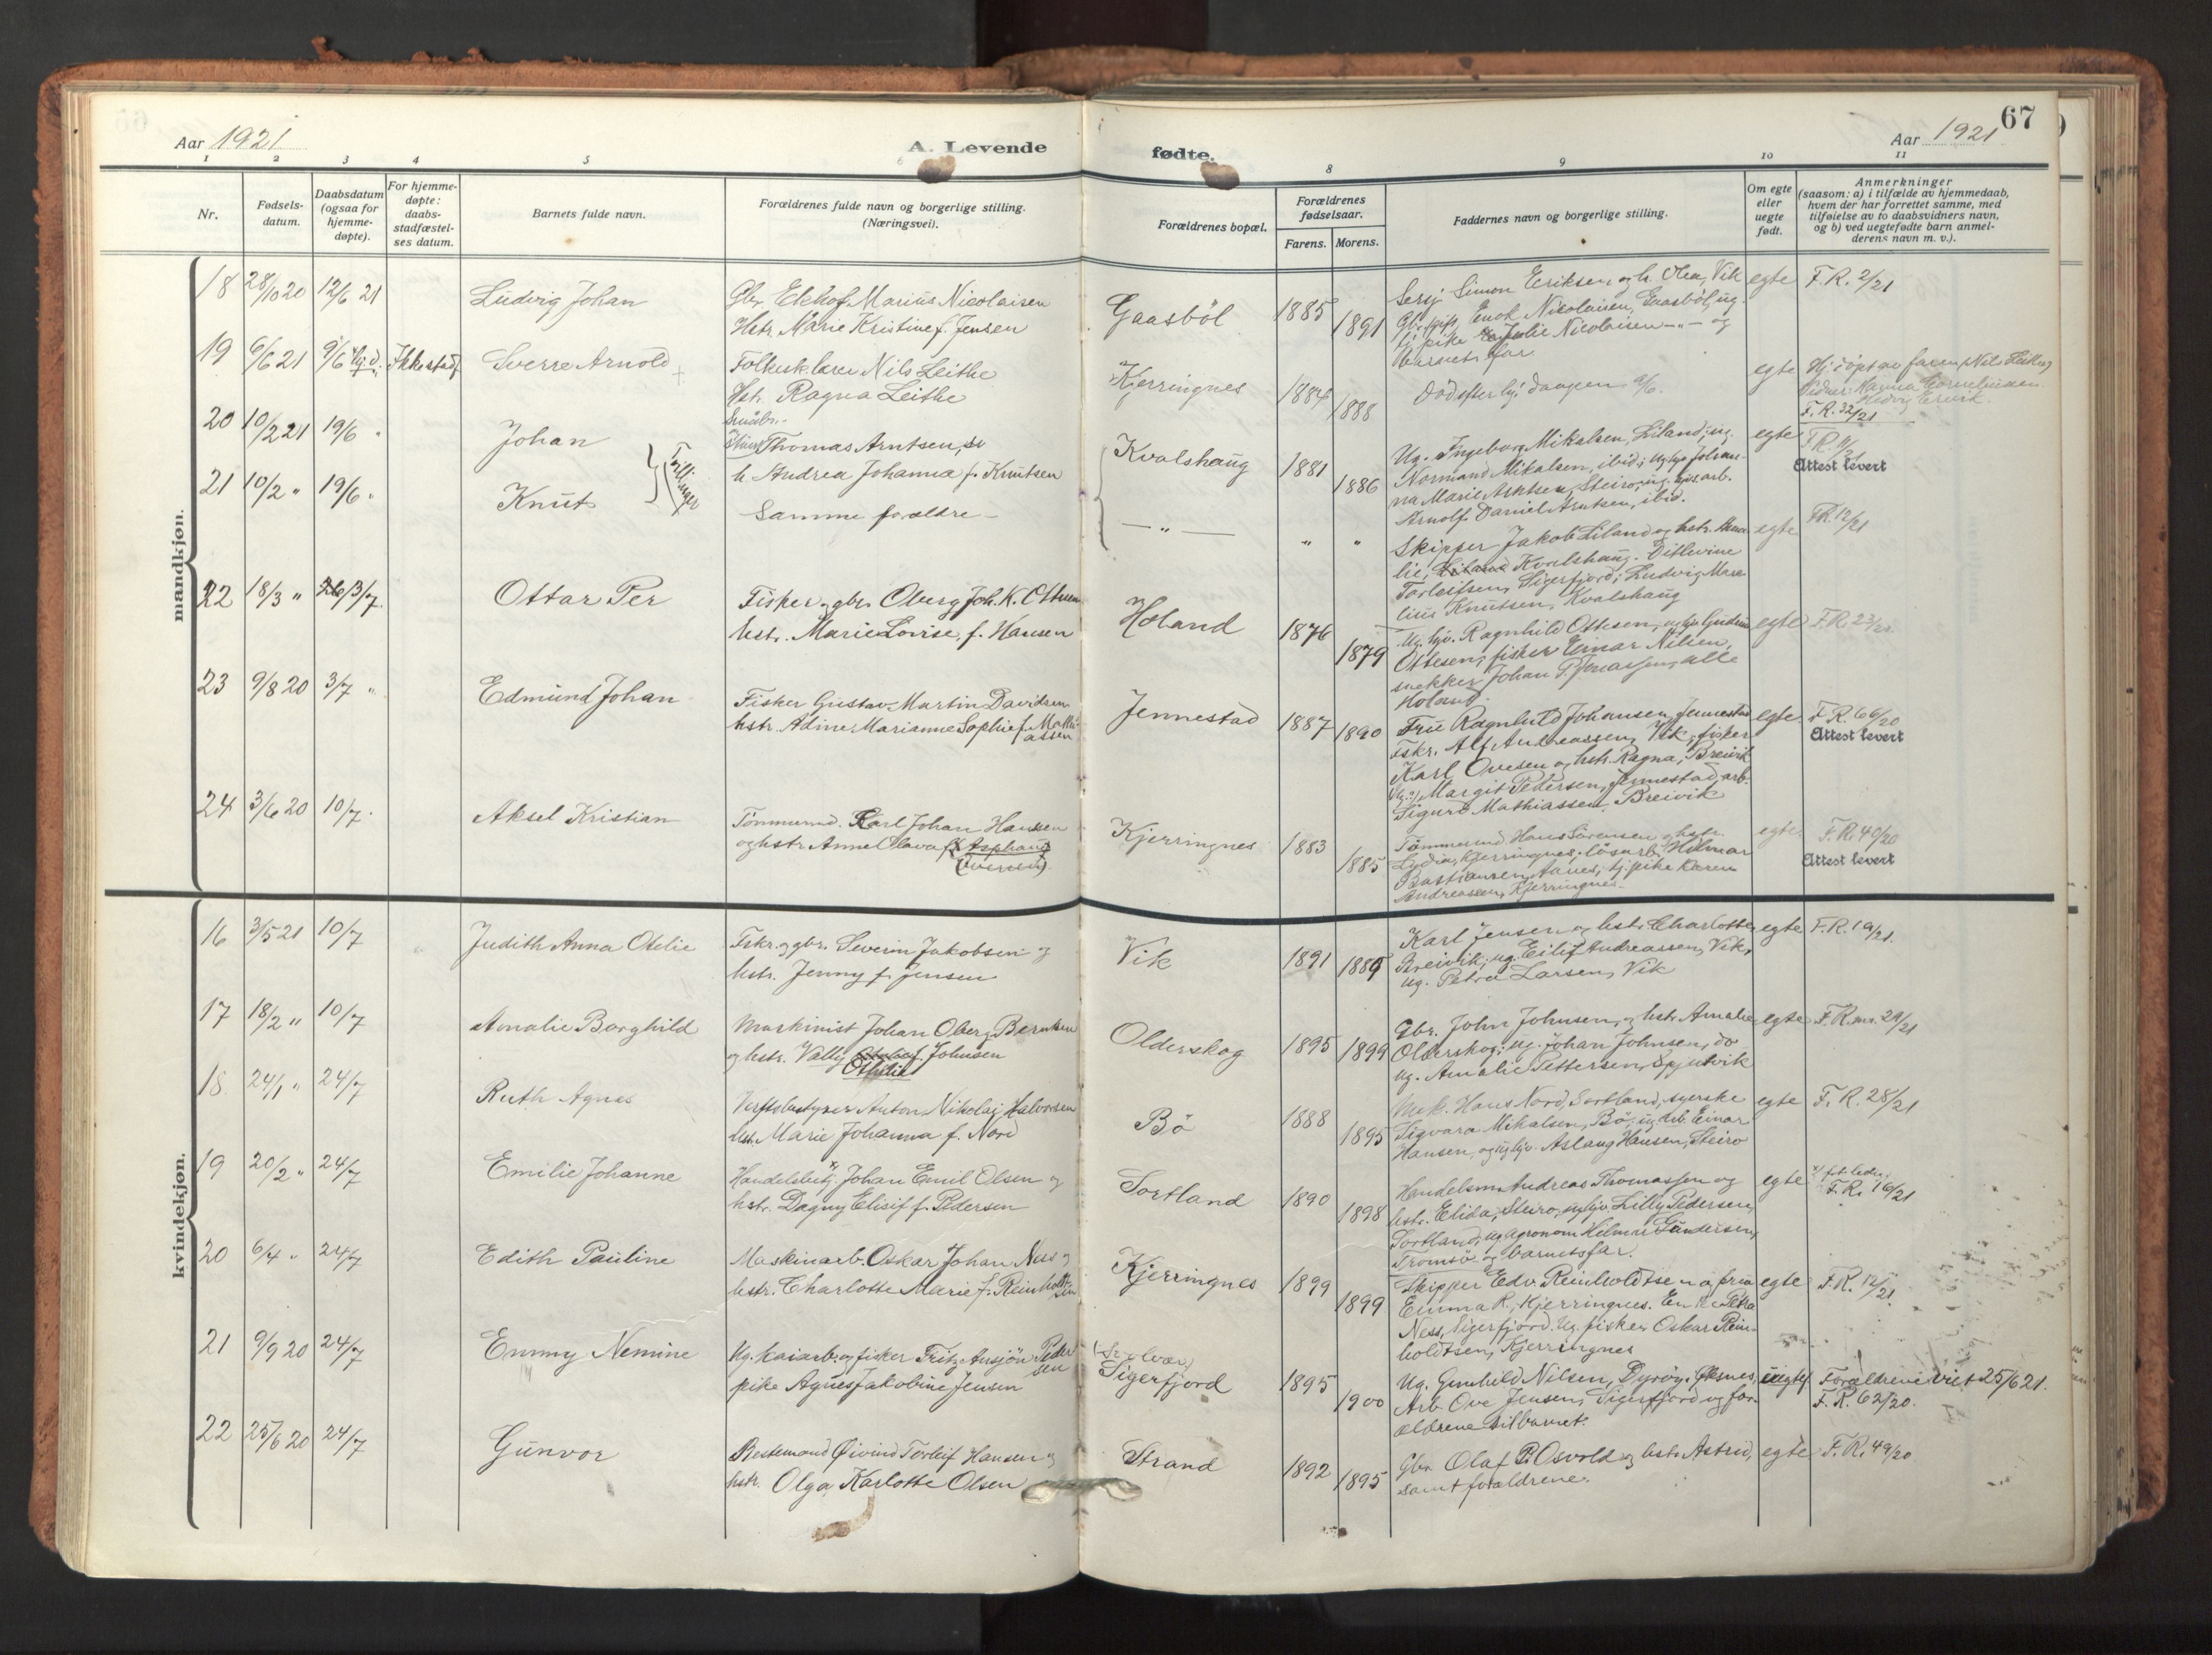 67
Aar 1921
A. Levende
fødte.
Aar 1921
1 2 3 4 5 8 9 10 11
Nr.
Fødsels-
datum.
Daabsdatum
(ogsaa for
hjemme-
døpte).
For hjemme-
døpte:
daabs-
stadfæstel-
ses datum.
Barnets fulde navn.
Forældrenes fulde navn og borgerlige stilling.
(Næringsvei).
Forældrenes bopæl.
Forældrenes
fødselsaar.
Farens. Morens.
Faddernes navn og borgerlige stilling.
Om egte
eller
uegte
født.
Anmerkninger
(saasom: a) i tilfælde av hjemmedaab,
hvem der har forrettet samme, med
tilføielse av to daabsvidners navn,
og b) ved uegtefødte barn anmel-
derens navn m. v.).
mandkjøn.
18 28/10 20 12/6 21 Ludvig Johan
Gbr. Ekhof Marius Nicolaisen
Hstr. Marie Kristine f. Jensen
Gaasböl 1885 1891
Simon Eriksen og h. Olea, Vik
Enok Nicolaisen, Gaasböl, ug.
tj. pike Julie Nicolaisen -"- og
barnets far
egte F. R. 2/21
19 6/6 21 9/6 hj.d. Ikke stadf. Sverre Arnold
Folkesk.lærer Nils Leithe
Hstr. Ragna Leithe
Kjerringnes 1884 1888
Död efter hj. daapen 9/6.
egte Hj. döpt av faren Nils Leithe
Vidner: Ragna Corneliussen
F. R. 32/21
20 10/2 21 19/6 " Johan
Tvillinger
Småbr.
Thomas Arntsen,
h. Andrea Johanna f. Knutsen
Kvalshaug 1881 1886
Ug. Ingeborg Mikalsen, Liland; ug.
Normand Mikalsen, ibid; Johan-
na Marie Arntsen, Steiro; ug. arb.
Arnolf Daniel Arntsen, ibid.
egte F.R. 11/21
Attest levert
21 10/2 " 19/6 " Knut
Samme forældre -
- " - " "
Skipper Jakob Liland og hstr.
lie, Liland Kvalshaug. Ditlevine
Torleifsen, Sigerfjord; Ludvig Mare
lius Knutsen, Kvalshaug
egte F.R. 12/21
22 18/3 " 3/7. Ottar Per
Fisker og gbr. Oberg Joh. K. Ottesen
hstr. Marie Lovise, f. Hansen
Holand 1876 1879
Ug. hjv. Ragnhild Ottesen, ug. hjv. Gudrun
Ottesen, fisker Einar Nilsen,
snekker Johan P. Jonassen, alle
Holand.
egte F.R. 23/21.
23 9/8 20 3/7 " Edmund Johan
Fisker Gustav Martin Davidsen
hstr. Adine Marianne Sophie f. Mathi-
assen
Jennestad 1887 1890
Frue Ragnhild Johansen, Jennestad
Fskr. Alf Andreassen, Vik, fisker
Karl Ovesen og hstr. Ragna, Breivik
Margit Pedersen, Jennestad, arb.
Sigurd Mathiassen, Breivik
egte F. R. 66/20
Attest levert
24 3/6 20 10/7. Aksel Kristian
Tömmermd. Karl Johan Hansen
og hstr. Anne Olava f. Asphaug
(Iversen).
Kjerringnes 1883 1885
Tömmermd. Hans Sörensen og hstr.
Lydia, Kjerringnes; lösarb. Hilmar
Bastiansen, Aanes; tj. pike Karen
Andreassen, Kjerringnes.
egte F. R. 40/20
Attest levert
kvindekjøn.
16 3/5 21 10/7 Judith Anna Otelie
Fskr. og gbr. Severin Jakobsen og
hstr. Jenny f. Jensen
Vik 1891 1889
Karl Jensen og hstr. Charlotte,
Breivik; ug. Eilif Andreassen, Vik,
ug. Petra Larsen, Vik
egte F.R. 19/21.
17 18/2 " 10/7 Amalie Borghild
Maskinist Johan Oberg Berntsen
og hstr. Vally f. Johnsen
Othilie
Olderskog 1895 1899
Gbr. John Johnsen, og hstr. Amalie,
Olderskog; ug. Johan Johnsen, do
ug. Amalie Pettersen, Spjutvik
egte F.R. nr. 29/21
18. 24/1 " 24/7 Ruth Agnes
Verftsbestyrer Anton Nikolaj Halvorsen
hstr. Marie Johanna f. Nord
Bö 1888 1895
Mek. Hans Nord, Sortland, syerske
Sigvara Mikalsen, Bö, ug. arb. Einar
Hansen, og ug. hjv. Aslaug Hansen, Steiro
egte F. R. 28/21
19 20/2 " 24/7 Emilie Johanne
Handelsbetj. Johan Emil Olsen og
hstr. Dagny Elisif f. Pedersen
Sortland 1890 1898
Handelsm. Andreas Thomassen og
hstr. Elida, Steiro, ug. hjv. Lilly Pedersen,
Sortland, ug. agronom Hilmar Gundersen,
Tromsö og barnets far.
egte F.R. 16/21
20 6/4 " 24/7 Edith Pauline
Maskinarb. Oskar Johan Ness og
hstr. Charlotte Marie f. Reinholdt-
sen
Kjerringnes 1899 1899
Skipper Edv. Reinholdtsen og frue
Emma R., Kjerringnes. Enke Petra
Ness, Sigerfjord. Ug. fisker Oskar Rein-
holdtsen, Kjerringnes
egte F.R. 12/21.
21 9/9 20 24/7 Emmy Nemine
Ug. kaiarb. og fisker Fritz Ansjön Peder
sen
pike Agnes Jakobine Jensen
(Svolvær)
Sigerfjord 1895 1900
Ug. Gunhild Nilsen, Dyröy, Öksnes,
Arb. Ove Jensen, Sigerfjord og for-
ældrene til barnet.
uegte Forældrene viet 25/6 21.
F. R. 62/20.
22 25/6 20 24/7 Gunvor
Bestemand Øivind Torleif Hansen og
hstr. Olga Karlotte Olsen
Strand 1892 1895
Gbr. Olaf P. Osvold og hstr. Astrid,
samt forældrene.
egte F. R. 49/20.